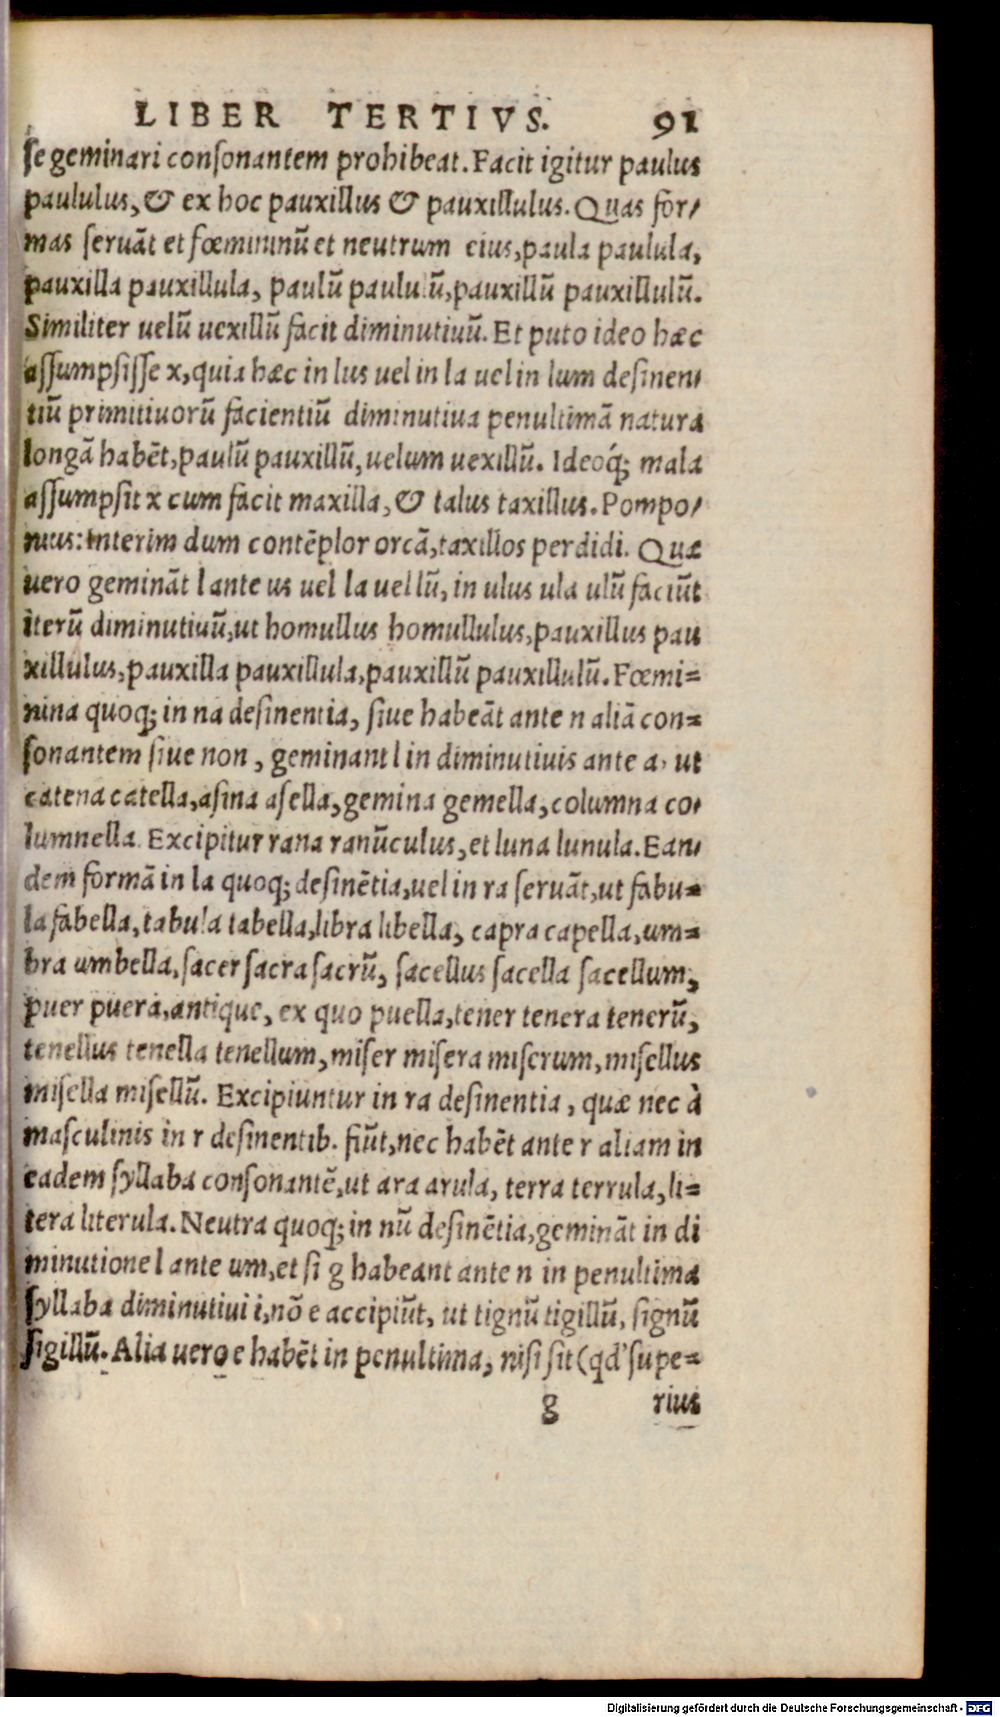 LIBER TERTIVS. 91
se geminari consonantem prohibeat. Facit igitur paulus
paululus, & ex hoc pauxillus & pauxillulus. Quas for/
mas seruāt et fœmininū et neutrum eius, paula paulula,
pauxilla pauxillula, paulū paululū, pauxillū pauxillulū.
Similiter uelū uexillū facit diminutiuū. Et puto ideo hæc
assumpsisse x, quia hæc in lus uel in la uel in lum desinen/
tiū primitiuorū facientiū diminutiua penultimā natura
longā habēt, paulū pauxillū, uelum uexillū. Ideoq́; mala
assumpsit x cum facit maxilla, & talus taxillus. Pompo/
nius: Interim dum contēplor orcā, taxillos perdidi. Quæ
uero gemināt l ante us uel la uel lū, in ulus ula ulū faciūt
iterū diminutiuū, ut homullus homullulus, pauxillus pau
xillulus, pauxilla pauxillula, pauxillū pauxillulū. Fœmi=
nina quoq; in na desinentia, siue habeāt ante n aliā con=
sonantem siue non, geminant l in diminutiuis ante a, ut
catena catella, asina asella, gemina gemella, columna co/
lumnella. Excipitur rana ranūculus, et luna lunula. Ean/
dem formā in la quoq; desinētia, uel in ra seruāt, ut fabu=
la fabella, tabula tabella, libra libella, capra capella, um=
bra umbella, sacer sacra sacrū, sacellus sacella sacellum,
puer puera, antique, ex quo puella, tener tenera tenerū,
tenellus tenella tenellum, miser misera miserum, misellus
misella misellū. Excipiuntur in ra desinentia, quæ nec à
masculinis in r desinentib. fiūt, nec habēt ante r aliam in
eadem syllaba consonantē, ut ara arula, terra terrula, li=
tera literula. Neutra quoq; in nū desinētia, gemināt in di
minutione l ante um, et si g habeant ante n in penultima
syllaba diminutiui i, nō e accipiūt, ut tignū tigillū, signū
sigillū. Alia uero e habēt in penultima, nisi sit (qd' supe=
g rius
Digitalisierung gefördert durch die Deutsche Forschungsgemeinschaft - DFG